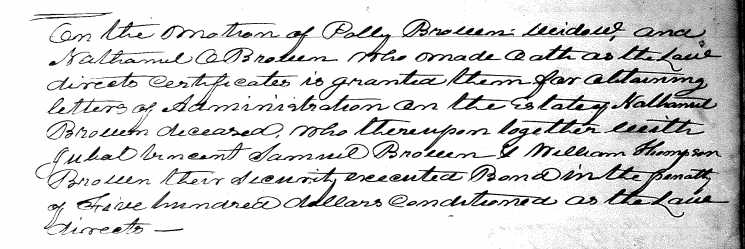 On the motion of Polly Brown widow, and
Nathaniel C Brown who made Oath as the Law
directs Certificates is granted them for obtaining
letters of Administration on the Estate of Nathaniel
Brown deceased, who thereupon together with
Jubal Vincent Samuel Brown & William Thompson
Brown their Security executed Bond in the penalty
of Five hundred dollars Conditioned as the Law
directs —